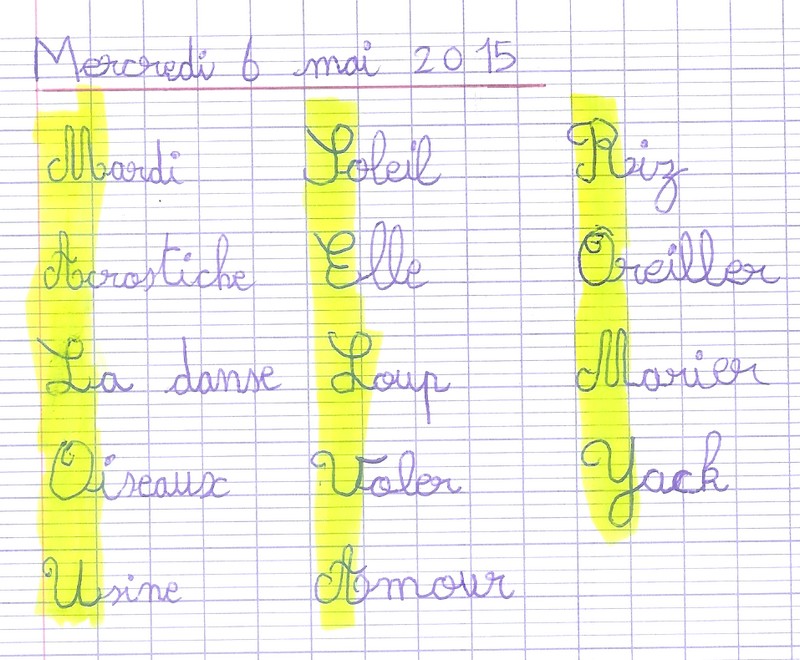 Mercredi 6 mai 2015
Mardi
Acrostiche
La danse
Oiseaux
Usine
Soleil
Elle
Loup
Voler
Amour
Riz
Oreiller
Marier
Yack